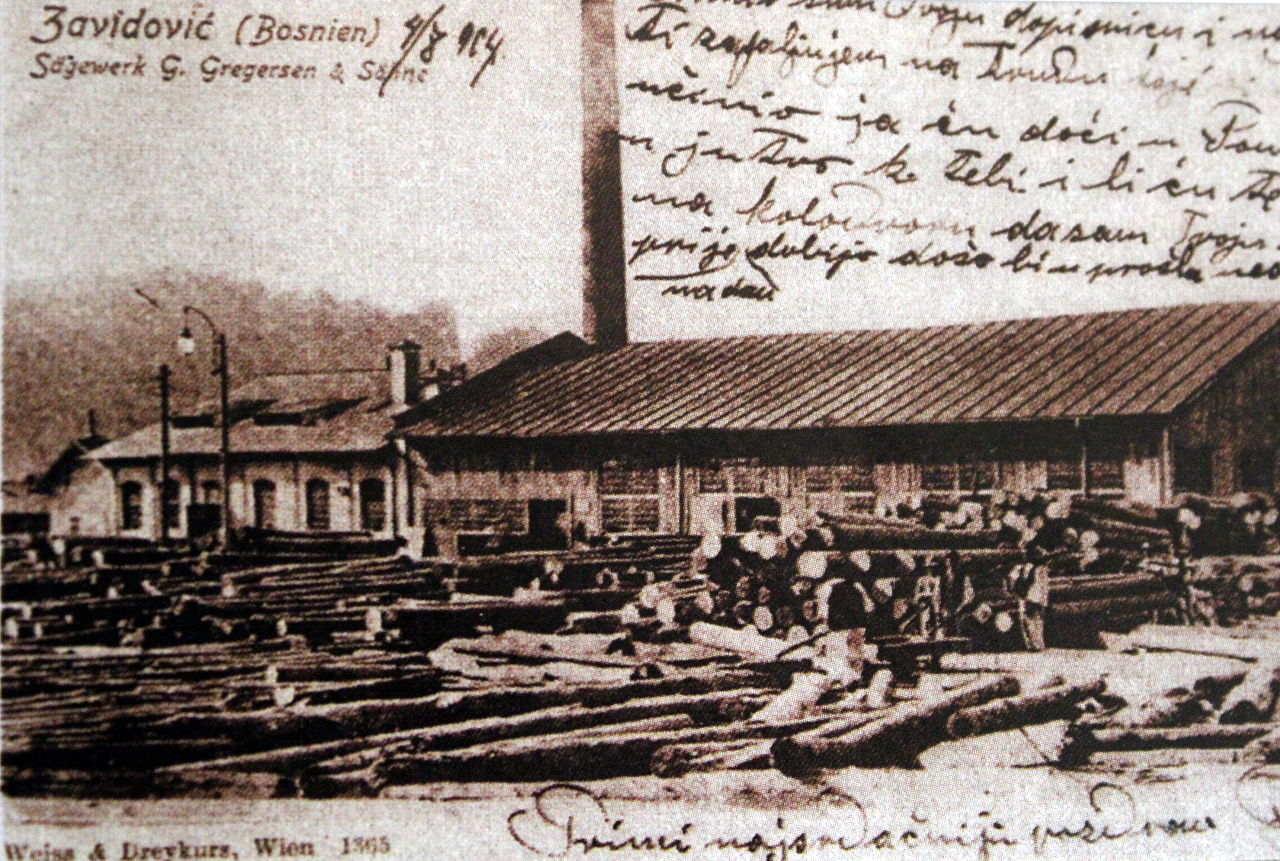 Zavidović (Bosnien) 4/8 904
Sägewerk G. Gregersen & Söhne
dopisnicu i
Ti zafaljujem na Trudu
učinio ja ću doći u
u jutro k Tebi i li ću
na kolodvoru da sam Tvoju
prije dobijo došo bi u prošlu
na dan
Primi najsrdačniji pozdrav
Weiss & Dreykurs, Wien 1365